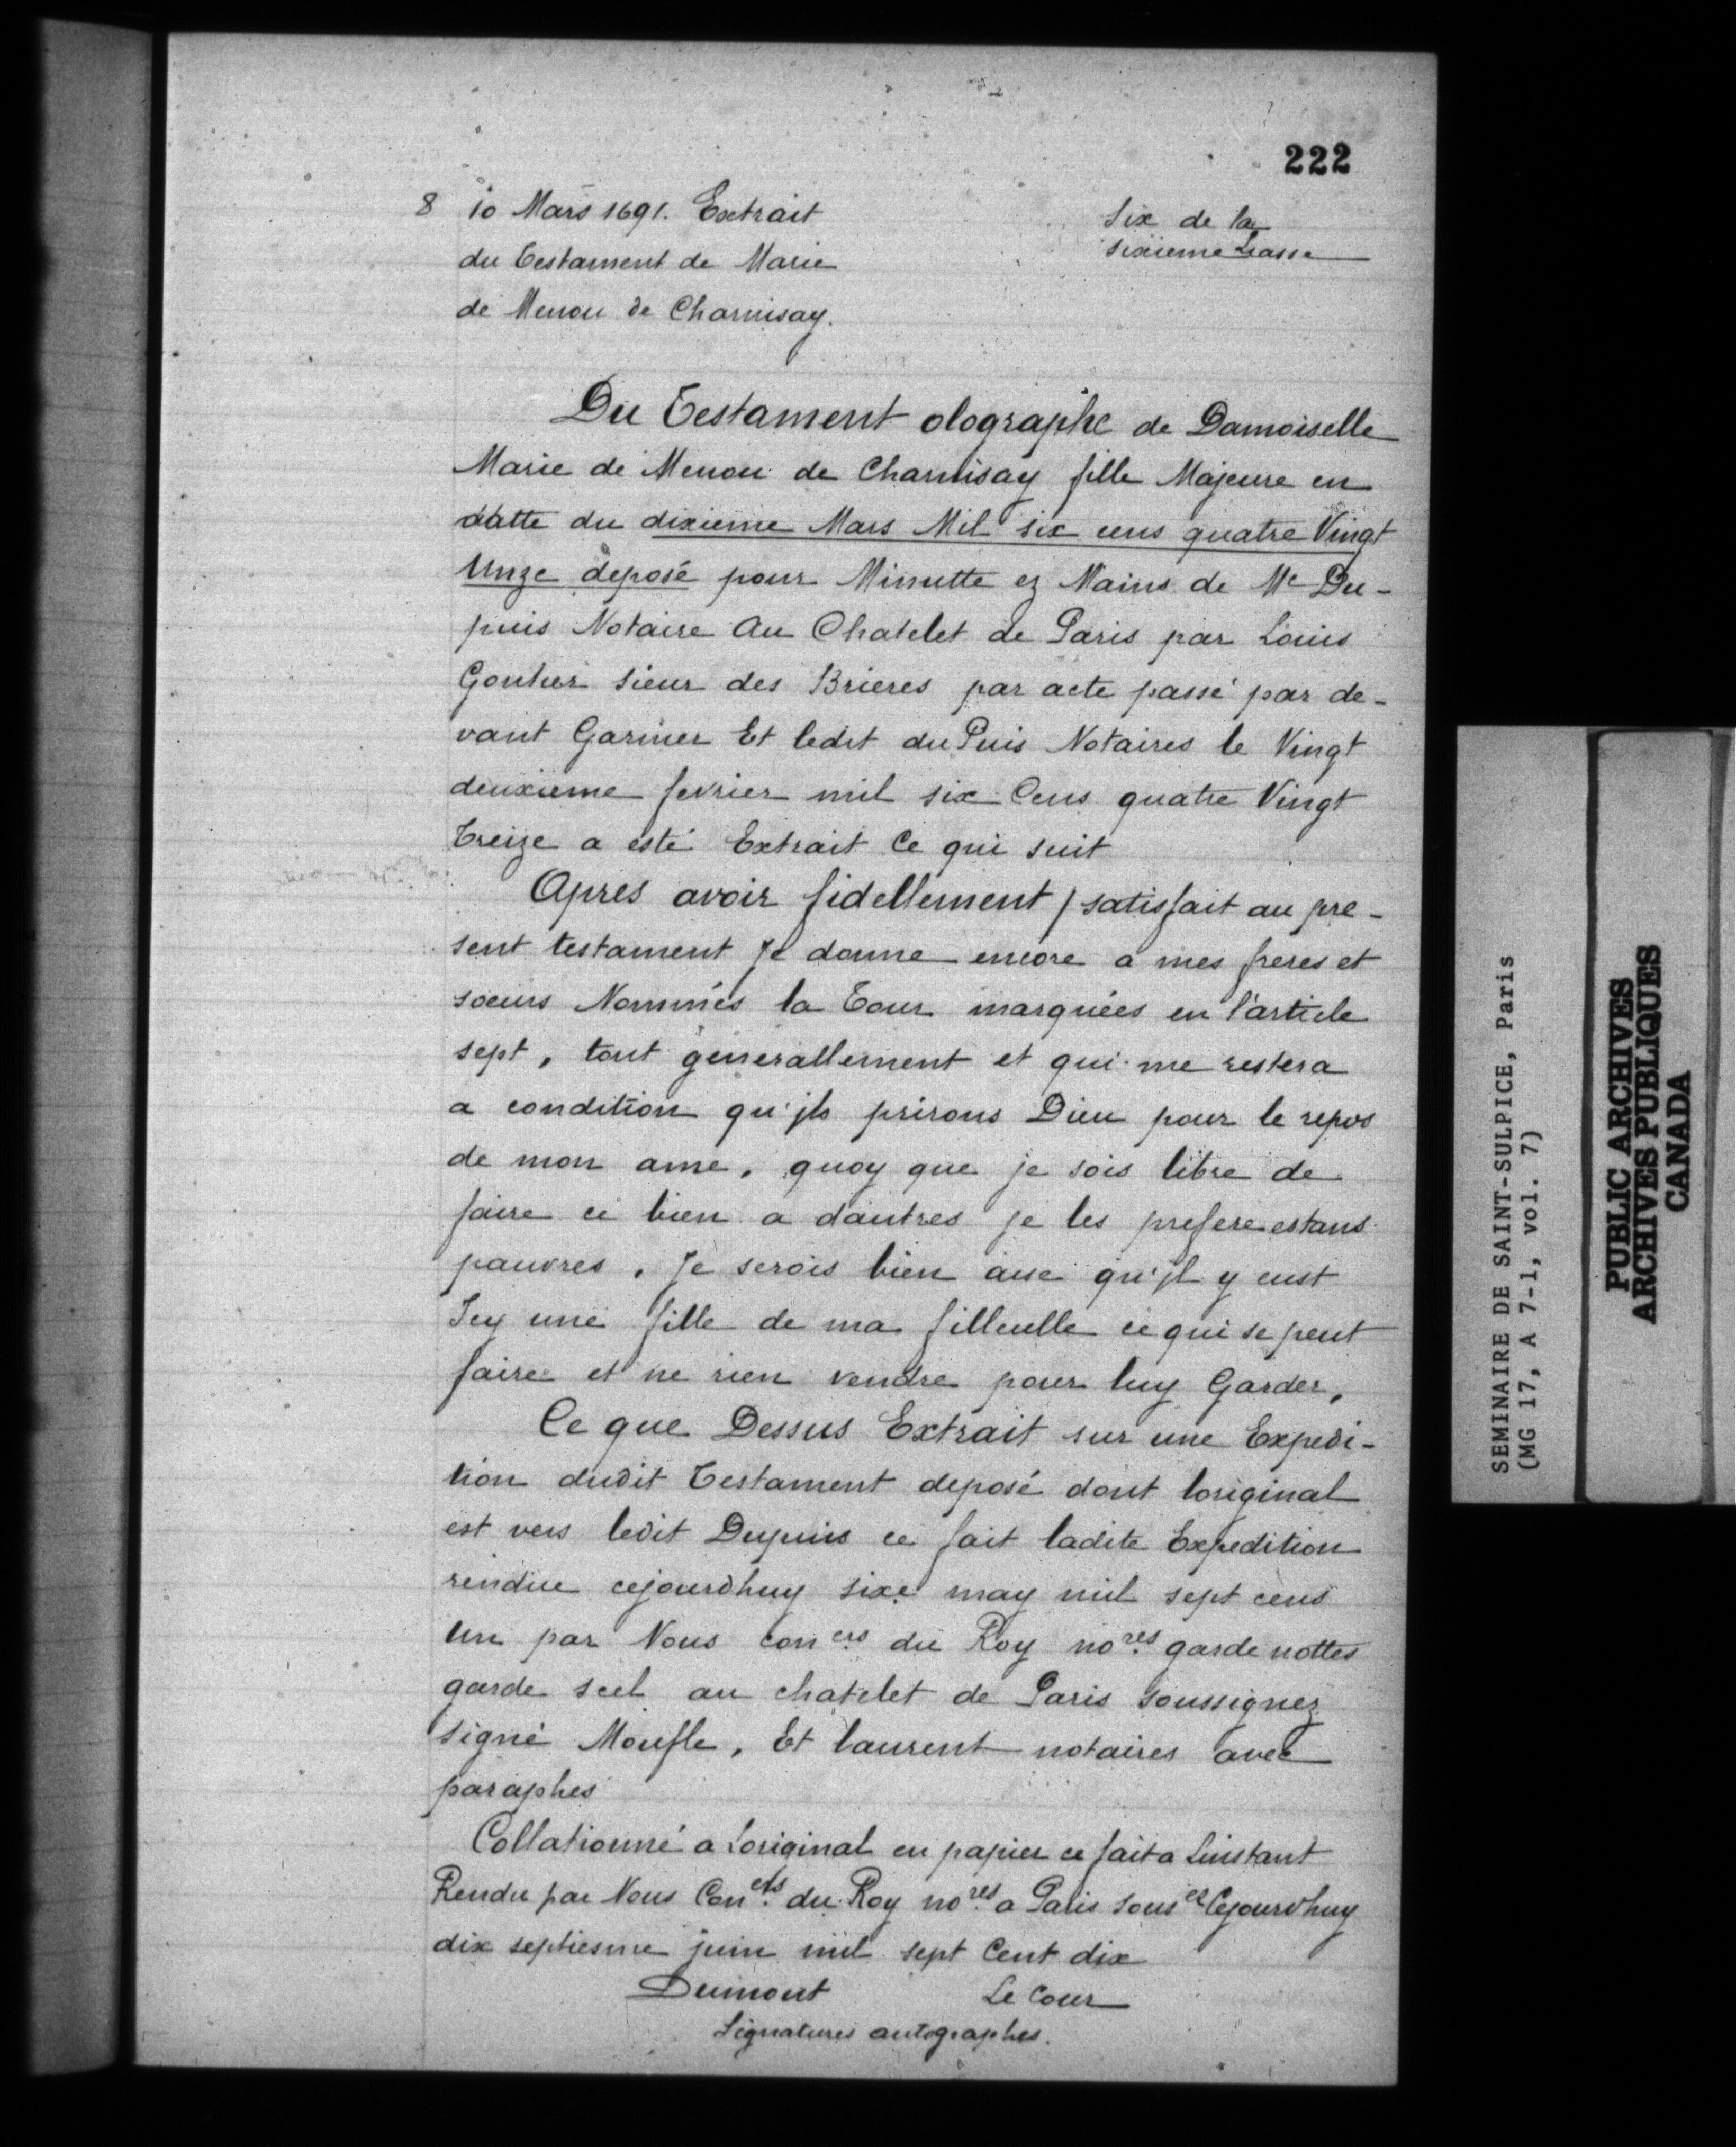 222
8 10 Mars 1691. Extrait
du Testament de Marie
de Menou de Charnisay.
Six de la
sixieme Liasse
Du Testament olographe de Damoiselle
Marie de Menou de Charnisay fille Majeure en
datte du dixieme Mars Mil six cens quatre Vingt
Unze deposé pour Minutte ez Mains de Me Du-
puis Notaire Au Chatelet de Paris par Louis
Gontier sieur des Brieres par acte passé par de-
vant Garnier Et ledit du Puis Notaires le Vingt
deuxieme fevrier mil six Cens quatre Vingt
Treize a esté Extrait Ce qui suit
Apres avoir fidellement / satisfait au pre-
sent testament Je donne encore a mes freres et
soeurs Nommés la Tour marquées en l'article
sept, tout generallement et qui me restera
a condition qu'jls prirons Dieu pour le repos
de mon ame, quoy que je sois libre de
faire ce bien a dautres je les prefere estans
pauvres, Je serois bien aise qu'jl y eust
Icy une fille de ma filleulle ce qui se peut
faire et ne rien vendre pour luy Garder,
Ce que Dessus Extrait sur une Expedi-
tion dudit Testament deposé dont loriginal
est vers ledit Dupuis ce fait ladite Expedition
rendue cejourdhuy sixe. may mil sept cens
Un par Nous con.ers du Roy no.res garde nottes
garde scel au chatelet de Paris soussignez
signé Moufle, Et laurent notaires avec
paraphes
Collationné a Loriginal en papier ce fait a Linstant
Rendu par Nous Con.ers du Roy no.res a Paris sous.ez Cejourdhuy
dix septiesme juin mil sept Cent dix
Dumont Le Cour
Signatures autographes.
SEMINAIRE DE SAINT-SULPICE, Paris
(MG 17, A 7-1, vol. 7)
PUBLIC ARCHIVES
ARCHIVES PUBLIQUES
CANADA